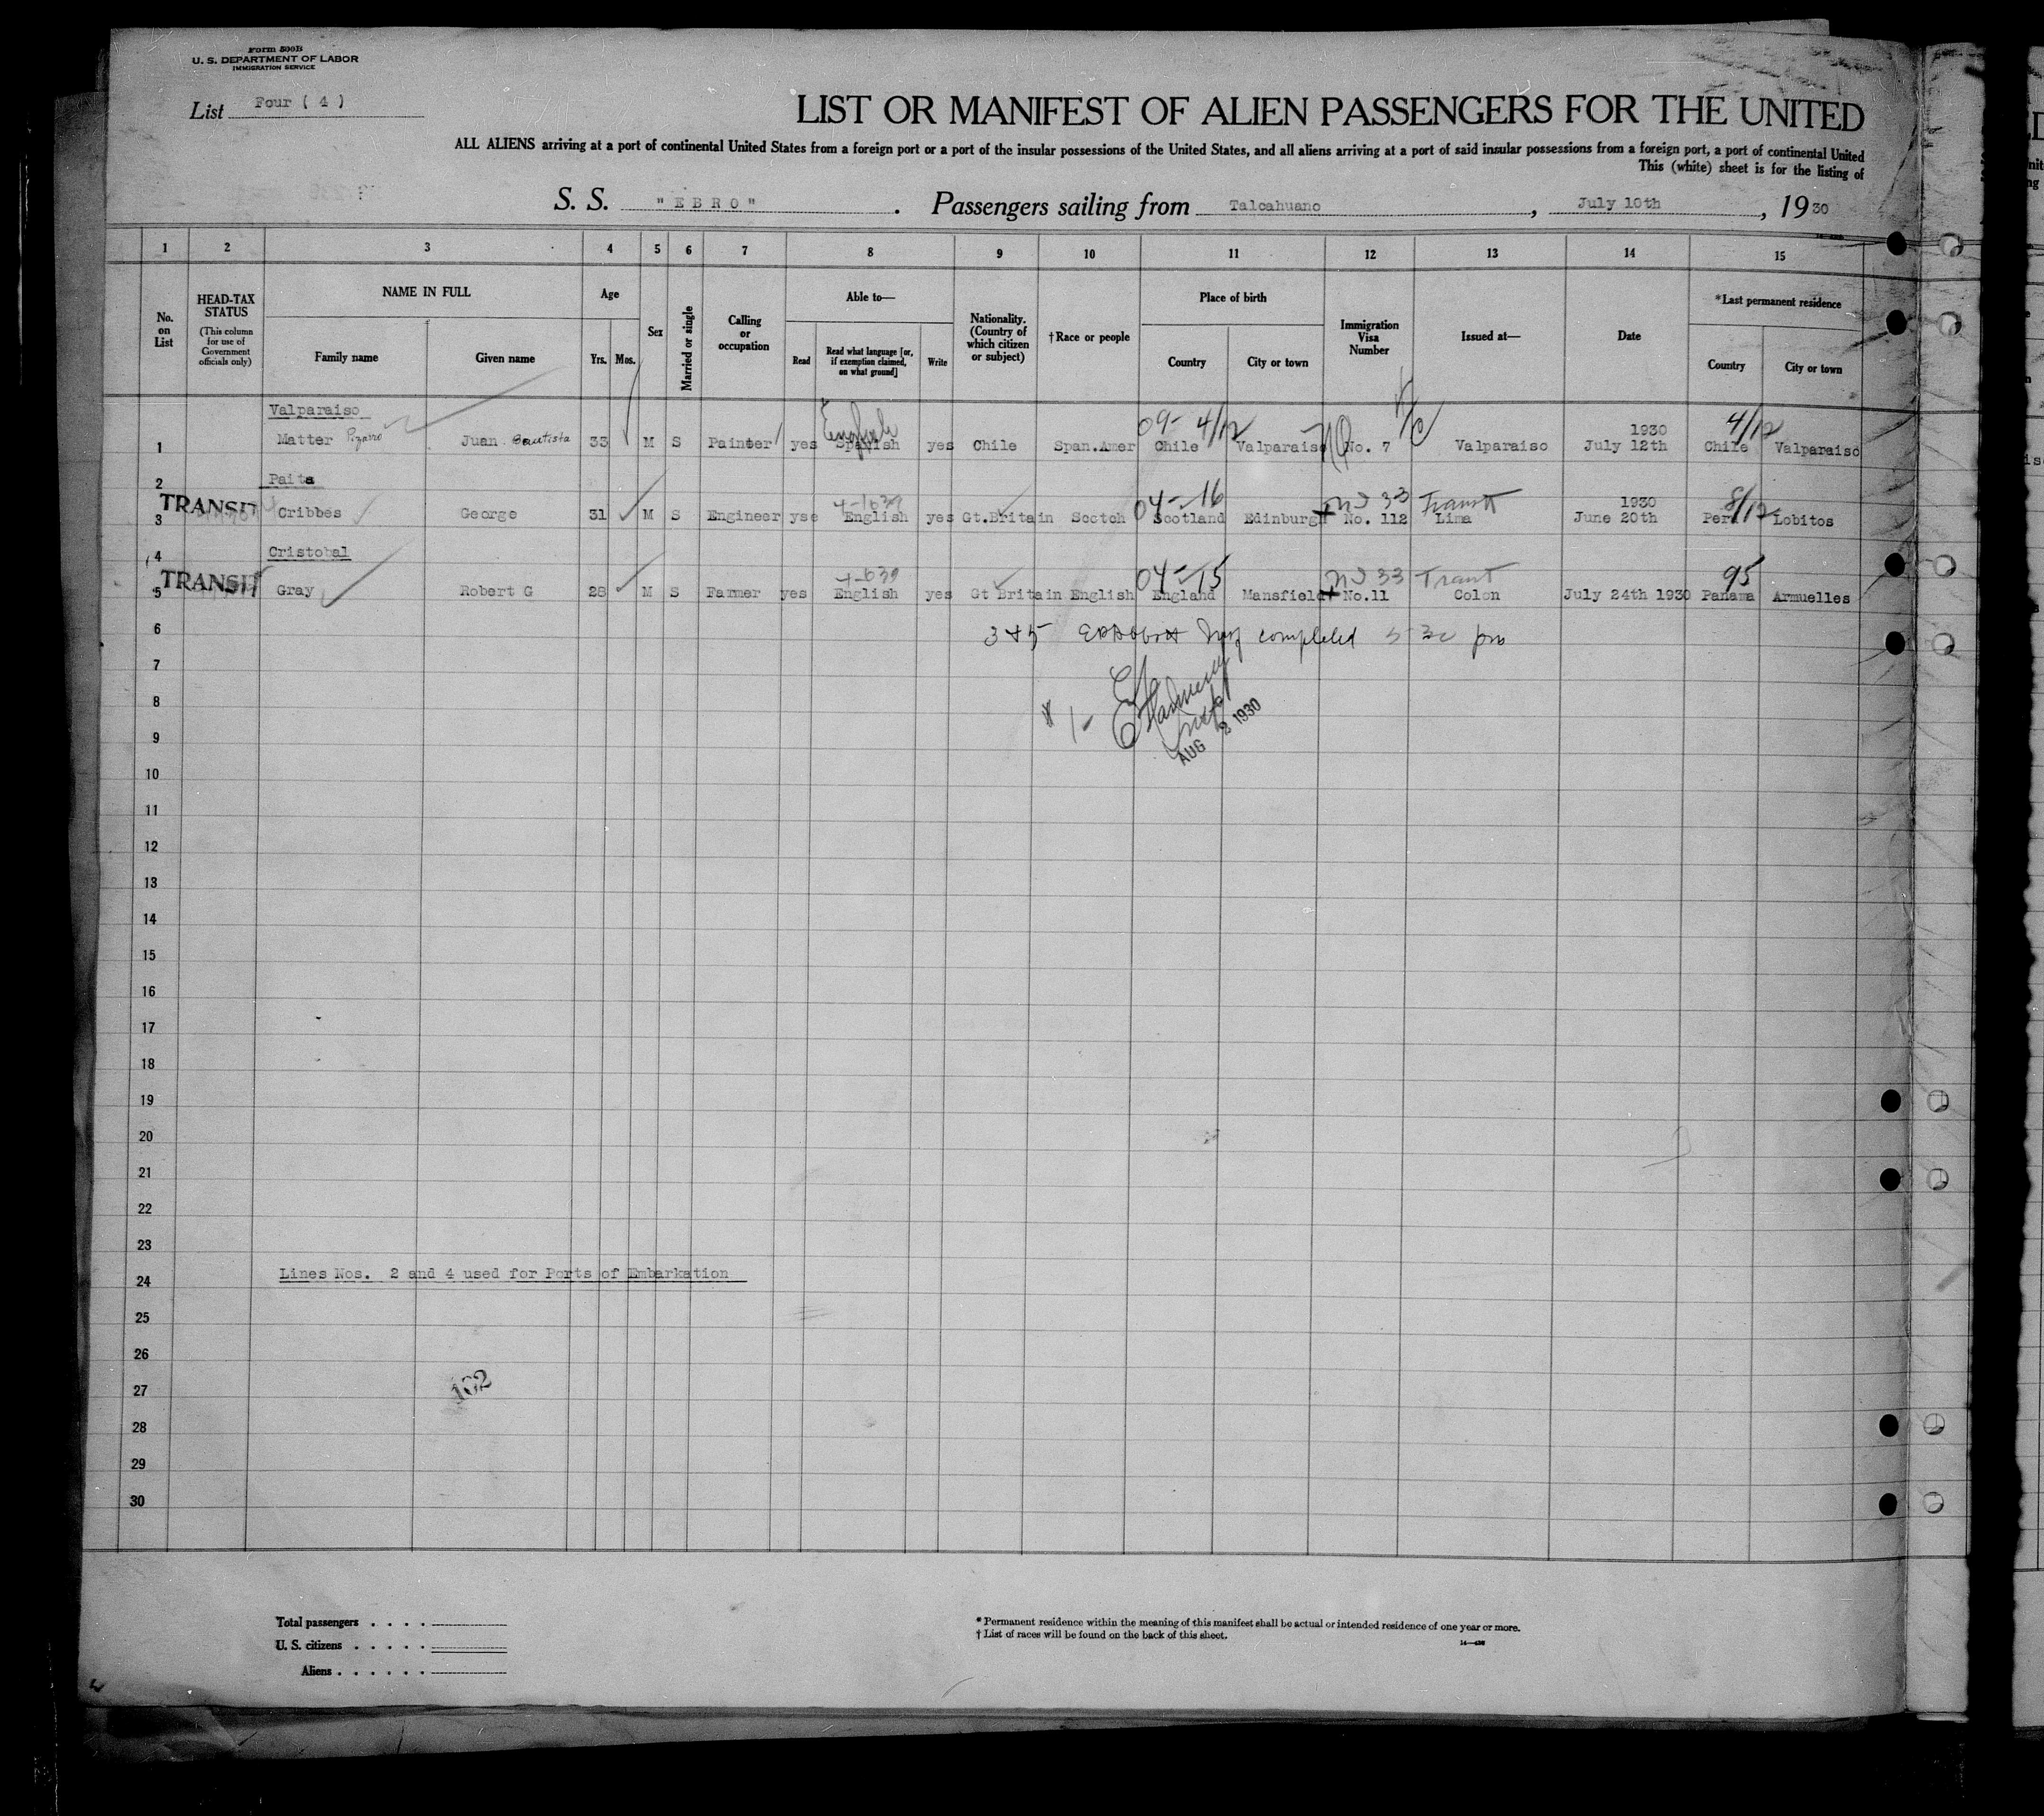 Form 500B
U. S. DEPARTMENT OF LABOR
IMMIGRATION SERVICE
List Four ( 4 )
LIST OR MANIFEST OF ALIEN PASSENGERS FOR THE UNITED
ALL ALIENS arriving at a port of continental United States from a foreign port or a port of the insular possessions of the United States, and all aliens arriving at a port of said insular possessions from a foreign port, a port of continental United
This (white) sheet is for the listing of
S. S. " E B R O " . Passengers sailing from Talcahuano , July 10th , 19 30
1 2 3 4 5 6 7 8 9 10 11 12 13 14 15
No. on List
HEAD-TAX STATUS (This column for use of Government officials only)
NAME IN FULL
Family name Given name
Age
Yrs. Mos.
Sex
Married or single
Calling or occupation
Able to—
Read Read what language [or, if exemption claimed, on what ground] Write
Nationality. (Country of which citizen or subject)
† Race or people
Place of birth
Country City or town
Immigration Visa Number
Issued at—
Date
*Last permanent residence
Country City or town
Valparaiso
09- 4/12 4/12
English 1930
1 Matter Pizarro Juan Bautista 33 M S Painter yes Spanish yes Chile Span.Amer Chile Valparaiso No. 7 Valparaiso July 12th Chile Valparaiso
2 Paita
TRANSIT 04- 16 33 Transit 1930 8/12
3 Cribbes George 31 M S Engineer yse English yes Gt.Britain Scotch Scotland Edinburgh No. 112 Lima June 20th Peru Lobitos
4 Cristobal
TRANSIT 04- 15 33 Transit 95
5 Gray Robert G 28 M S Farmer yes English yes Gt Britain English England Mansfield No.11 Colon July 24th 1930 Panama Armuelles
6 3 & 5 completed pm
7
8
AUG 2 1930
9
10
11
12
13
14
15
16
17
18
19
20
21
22
23
24 Lines Nos. 2 and 4 used for Ports of Embarkation
25
26
27 162
28
29
30
Total passengers . . . .
U. S. citizens . . . . .
Aliens . . . . . .
* Permanent residence within the meaning of this manifest shall be actual or intended residence of one year or more.
† List of races will be found on the back of this sheet.